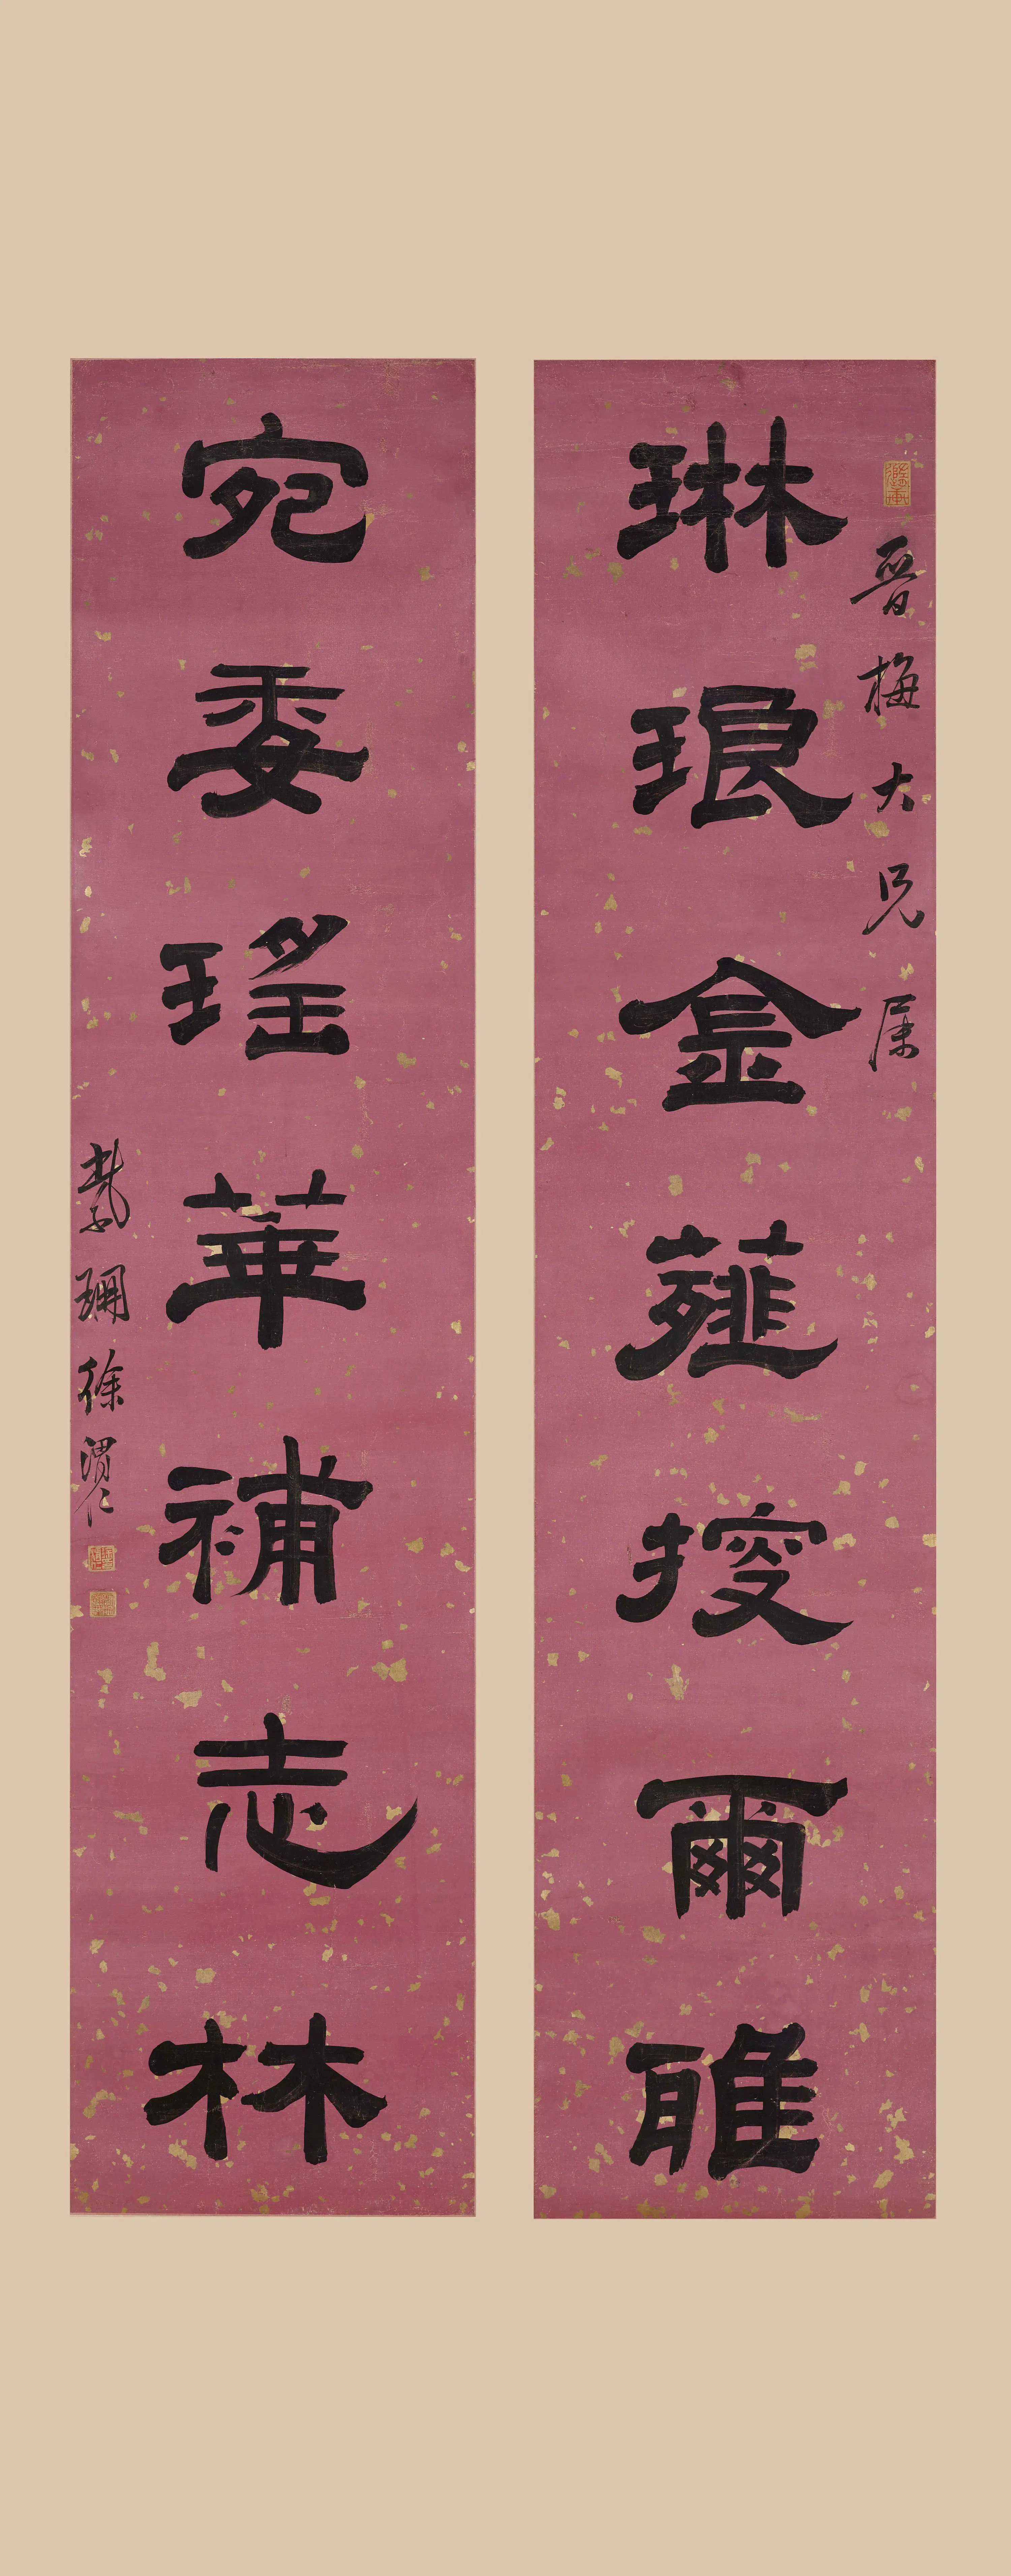 隨軒
晉梅大兄屬
琳琅金薤搜爾雅
宛委瑤華補志林
紫珊徐渭仁